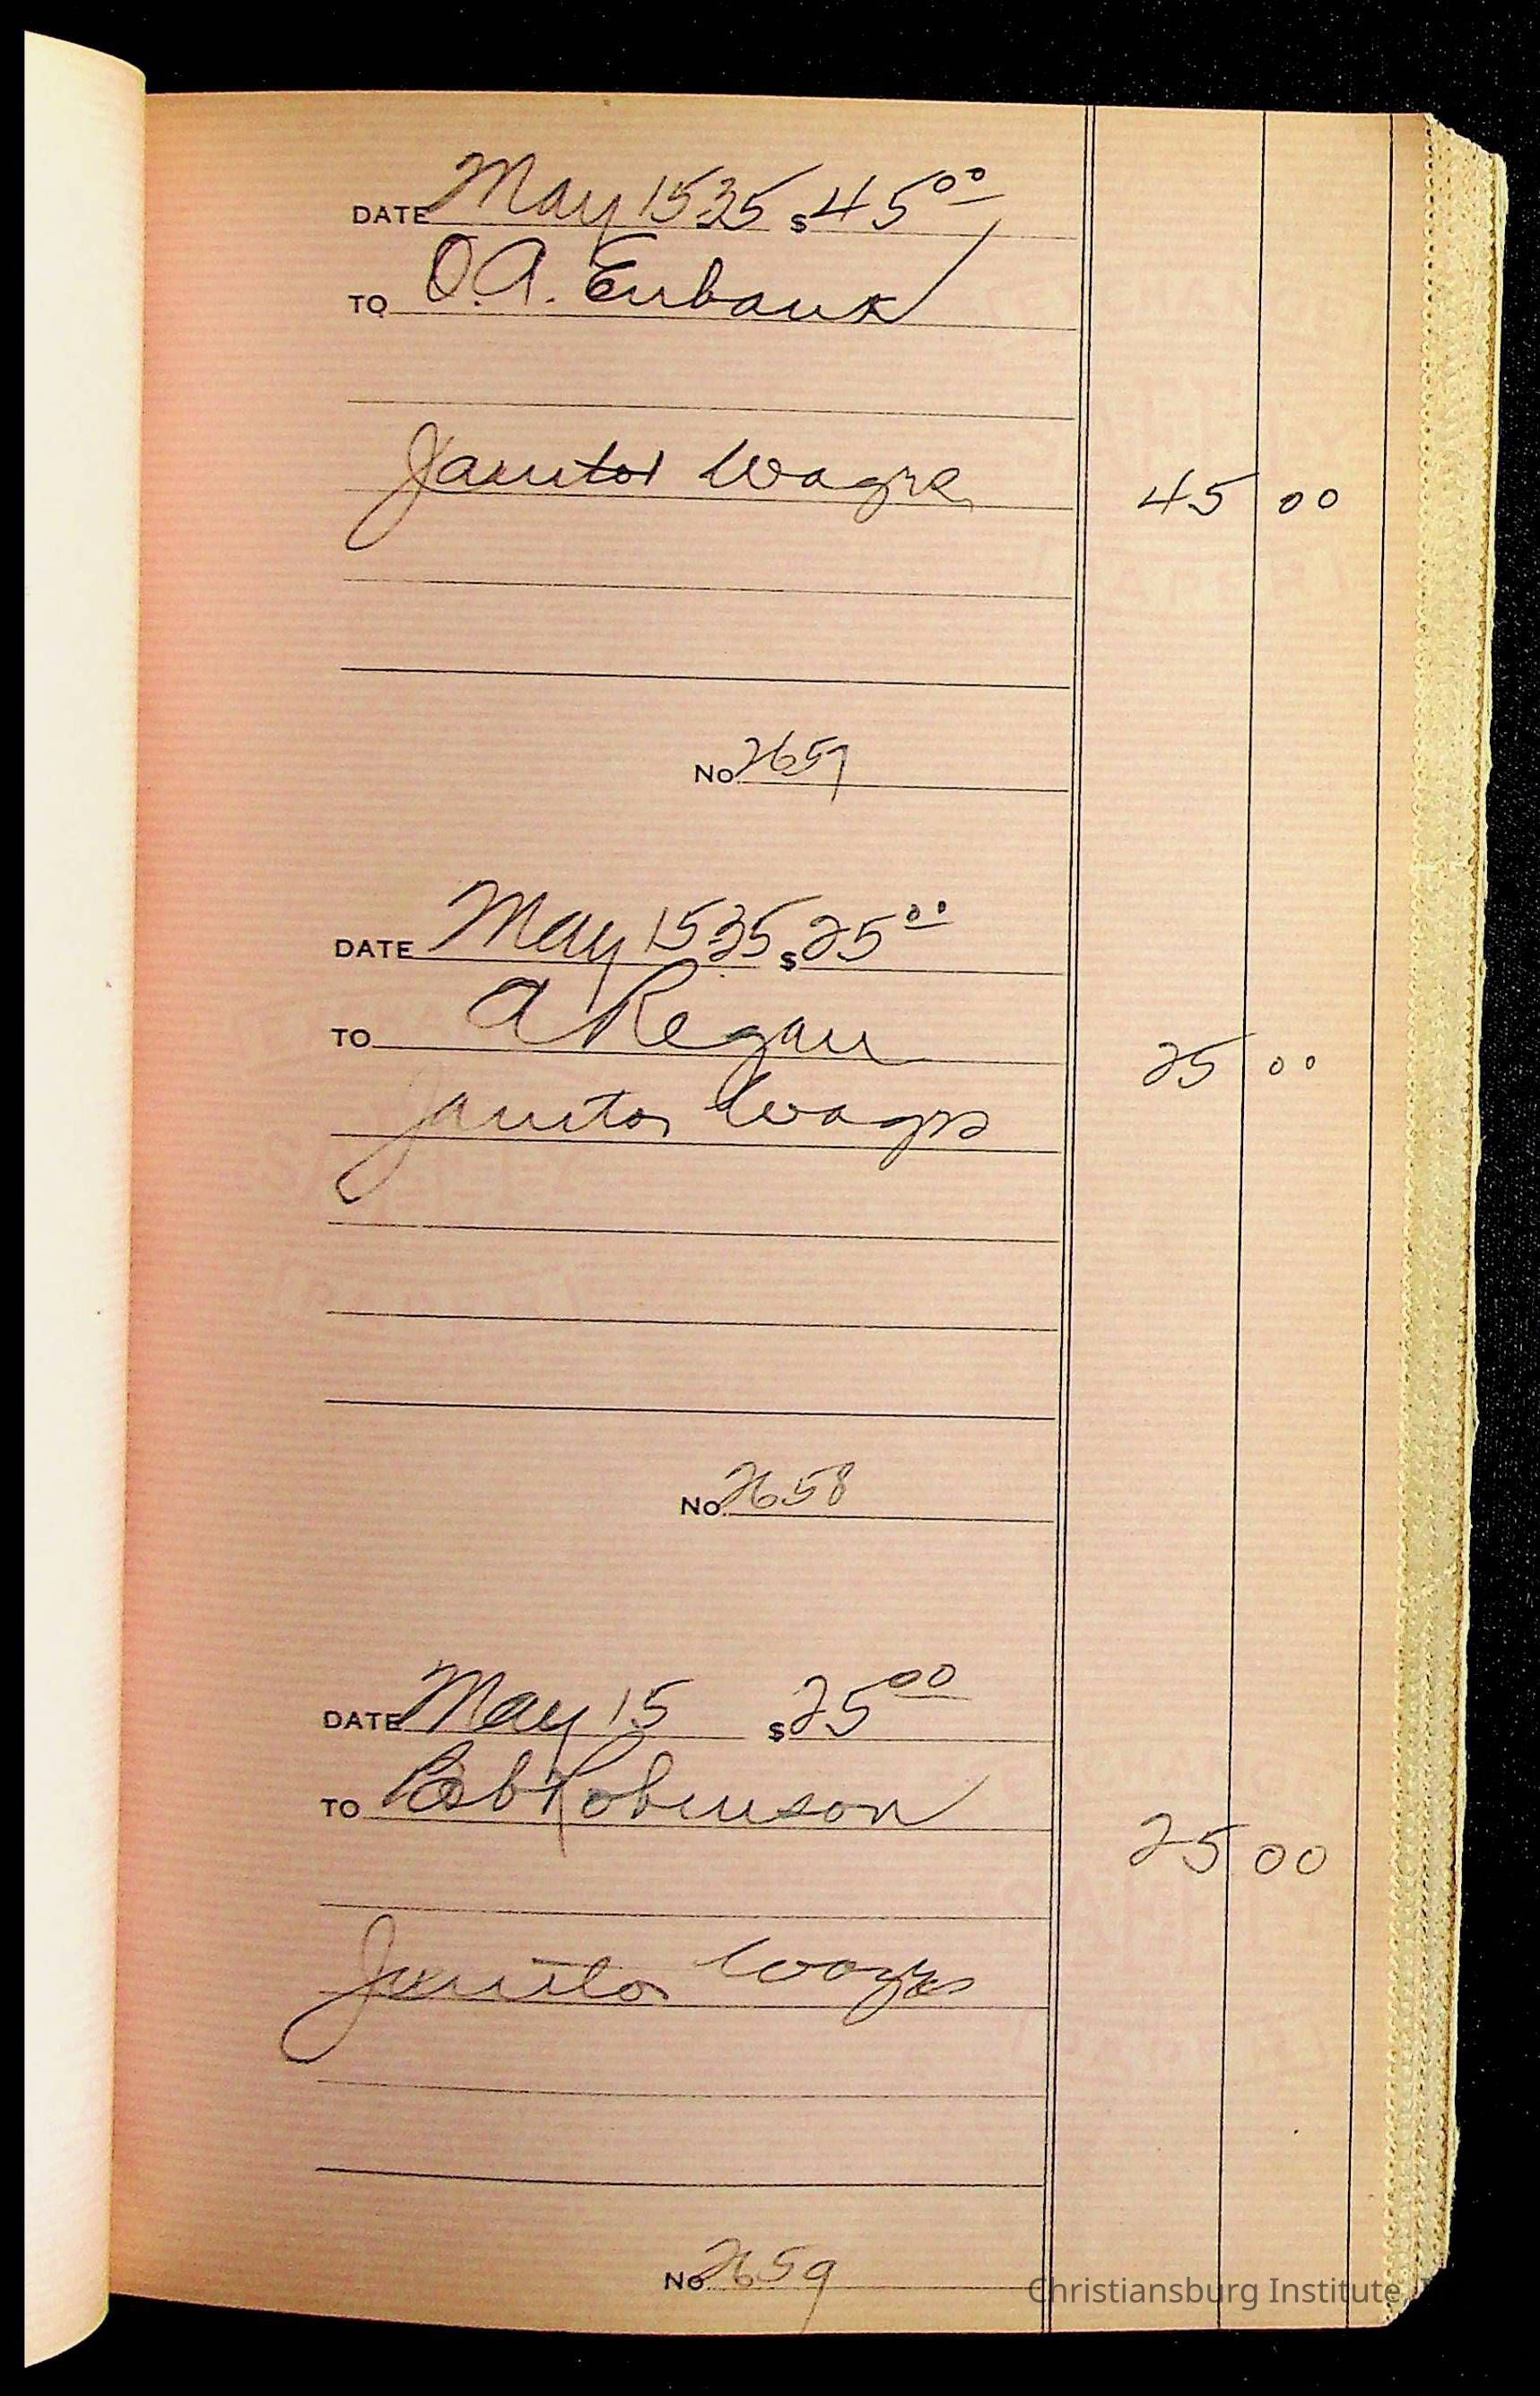 DATE May 15 35 $ 45 00
TO O.A. Eubank
Janitor Wages 45 00
No. 2657
DATE May 15 35 $ 25 00
TO A Regan 25 00
Janitor Wages
No. 2658
DATE May 15 $ 25 00
TO Bob Robinson
25 00
Janitor Wages
No. 2659
Christiansburg Institute,